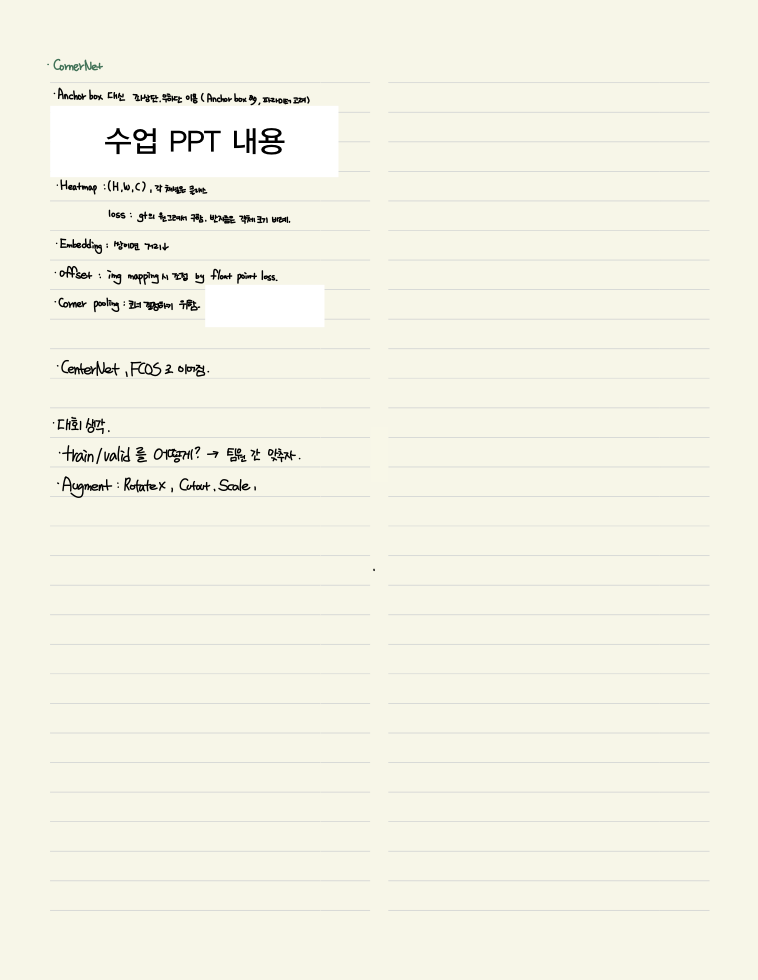 · CornerNet
· Anchor box 대신 좌상단, 우하단 이용 (Anchor box 多, 파라미터 고려)
수업 PPT 내용
· Heatmap : (H, W, C), 각 채널은 클래스
loss : gt의 원 그려서 구함. 반지름은 객체 크기 비례.
· Embedding : 쌍이면 거리↓
· offset : img mapping 시 조정 by float point loss.
· Corner pooling : 코너 결정하기 위함.
· CenterNet, FCOS로 이어짐.
· 대회 생각.
· train/valid 를 어떻게? → 팀원 간 맞추자.
· Augment : Rotate X, Cutout, Scale,